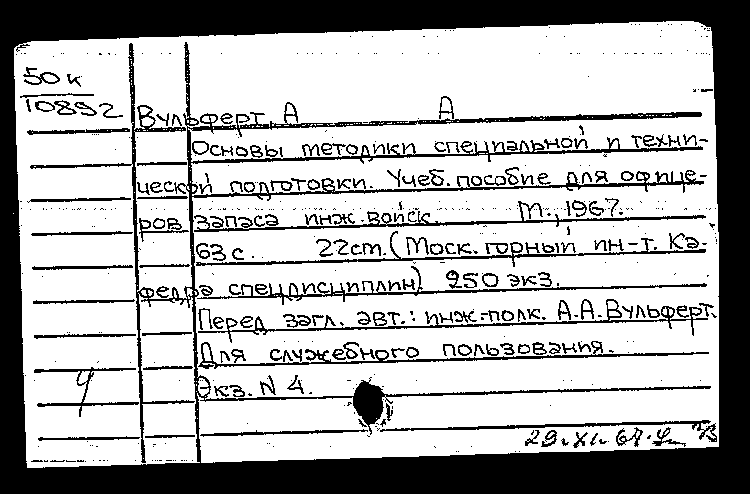 50к
10892
Вульферт, А А
Основы методики специальной и техни-
ческой подготовки. Учеб. пособие для офице-
ров запаса инж. войск. М., 1967.
63 с. 22 cm. (Моск. горный ин-т. Ка-
федра спецдисциплин) 250 экз.
Перед загл. авт.: инж-полк. А.А. Вульферт.
Для служебного пользования.
Экз. N 4.
29.XI.67.